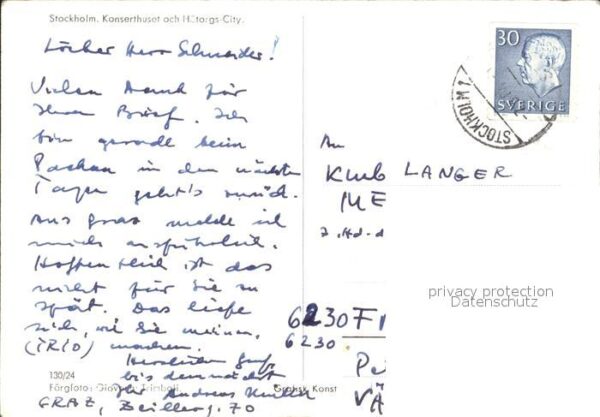 Stockholm. Konserthuset och Hötorgs-City.
Lieber Herr Schneider!
Vielen Dank für
Ihren Brief. Ich
bin gerade beim
Packen in den nächsten
Tagen geht's zurück.
Aus Graz melde ich
mich ausführlich.
Hoffentlich ist das
nicht für Sie zu
spät. Das ließe
sich, wie Sie meinen,
(TRIO) machen.
Herzlichen Gruß
bis demnächst
Ihr Andreas
GRAZ, 70
130/24
Färgfoto: Giovanni Trimboli
Grafisk Konst
30
SVERIGE
STOCKHOLM 1
An
Klub LANGER
ME
z. Hd. d
privacy protection
Datenschutz
6230 F
6230
Pe
VÄ